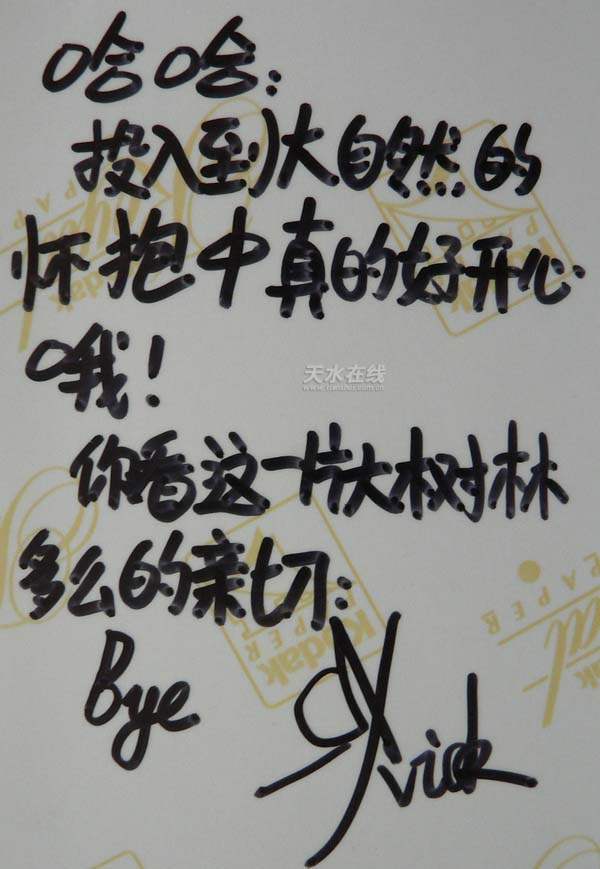 哈哈:
投入到大自然的
怀抱中真的好开心
哦!
天水在线
www.tianshui.com.cn
你看这一片大树林
多么的亲切:
Bye
Kodak
PAPER
Kodak
PAPER
Royal